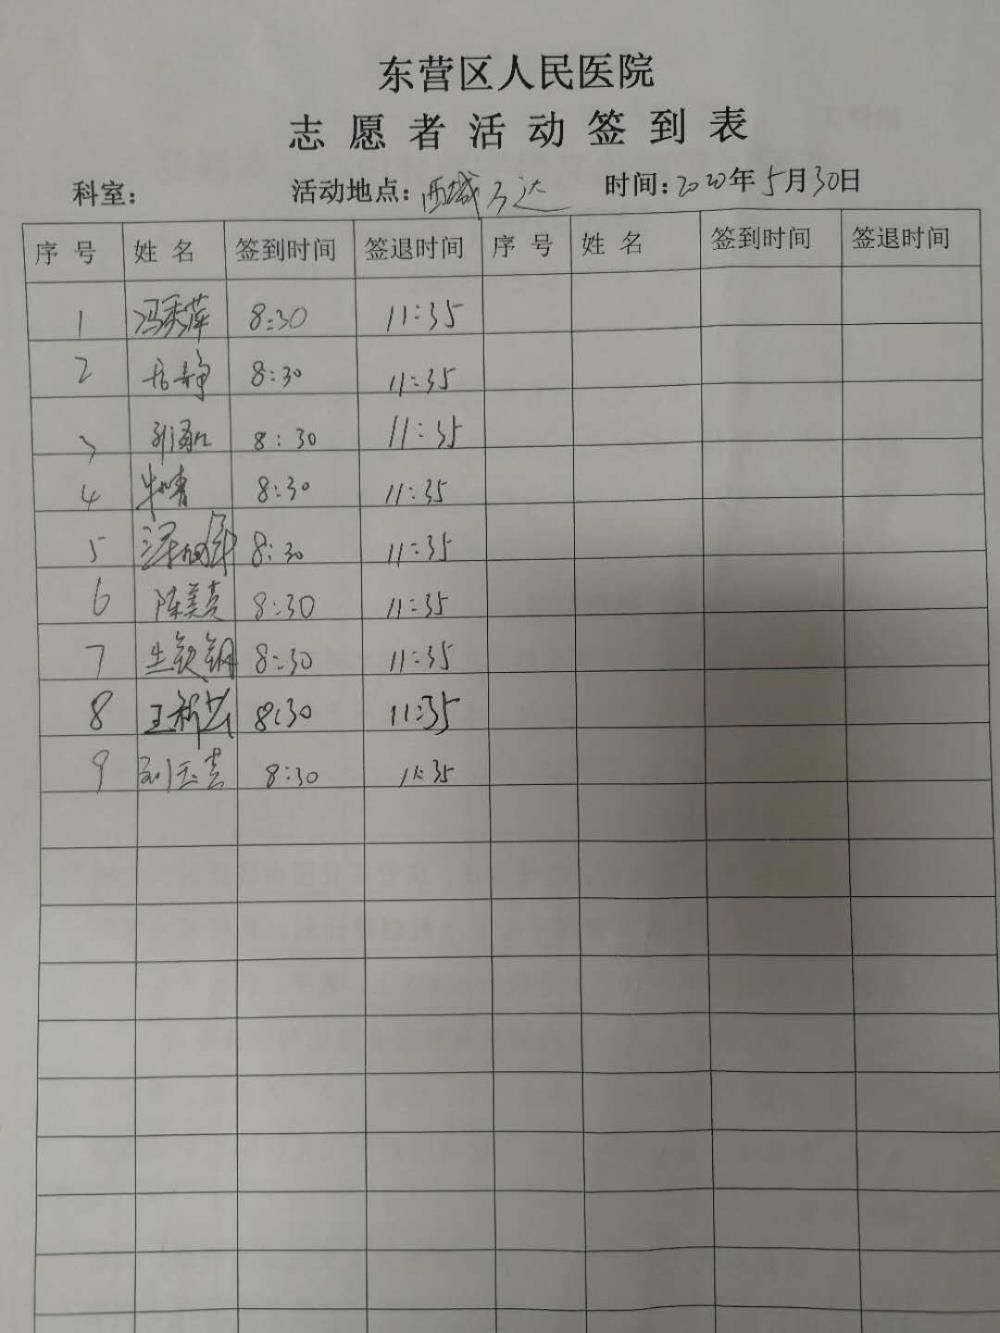 东营区人民医院
志愿者活动签到表
科室： 活动地点：西城万达 时间：2020年5月30日
序号 姓名 签到时间 签退时间 序号 姓名 签到时间 签退时间
1 冯秀萍 8:30 11:35
2 静 8:30 11:35
3 8:30 11:35
4 8:30 11:35
5 8:30 11:35
6 陈美真 8:30 11:35
7 8:30 11:35
8 王新 8:30 11:35
9 刘玉真 8:30 11:35